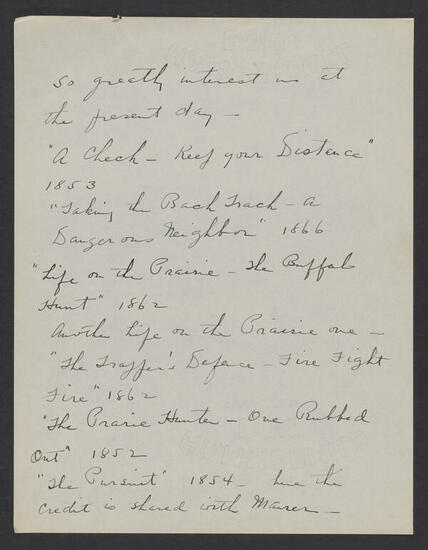 so greatly interest us at
the present day —
"A Check — Keep your Distance"
1853
"Taking the Back Track — a
Dangerous Neighbor" 1866
"Life on the Prairie — The Buffalo
Hunt" 1862
Another Life on the Prairie one —
"The Trapper's Defence — Fire Fight
Fire" 1862
"The Prairie Hunter — One Rubbed
Out" 1852
"The Pursuit" 1854 — here the
credit is shared with Maurer —